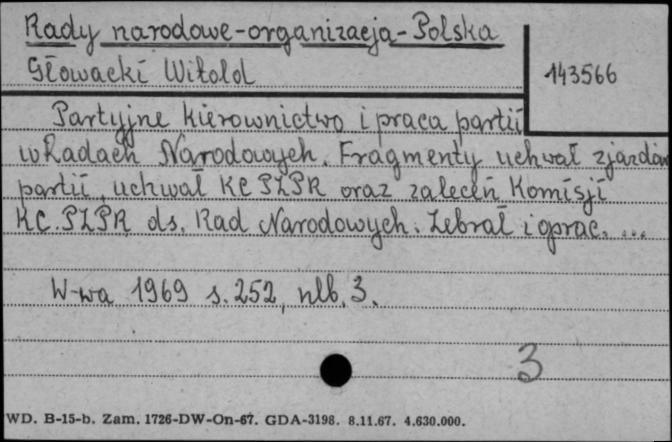 Rady narodowe-organizacja-Polska
Głowacki Witold
143566
Partyjne kierownictwo i praca partii
w Radach Narodowych. Fragmenty uchwał zjazdów
partii, uchwał KC PZPR oraz zaleceń Komisji
KC. PZPR ds. Rad Narodowych. Zebrał i oprac. ...
W-wa 1969 s. 252, nlb. 3.
3
WD. B-15-b. Zam. 1726-DW-On-67. GDA-3198. 8.11.67. 4.630.000.